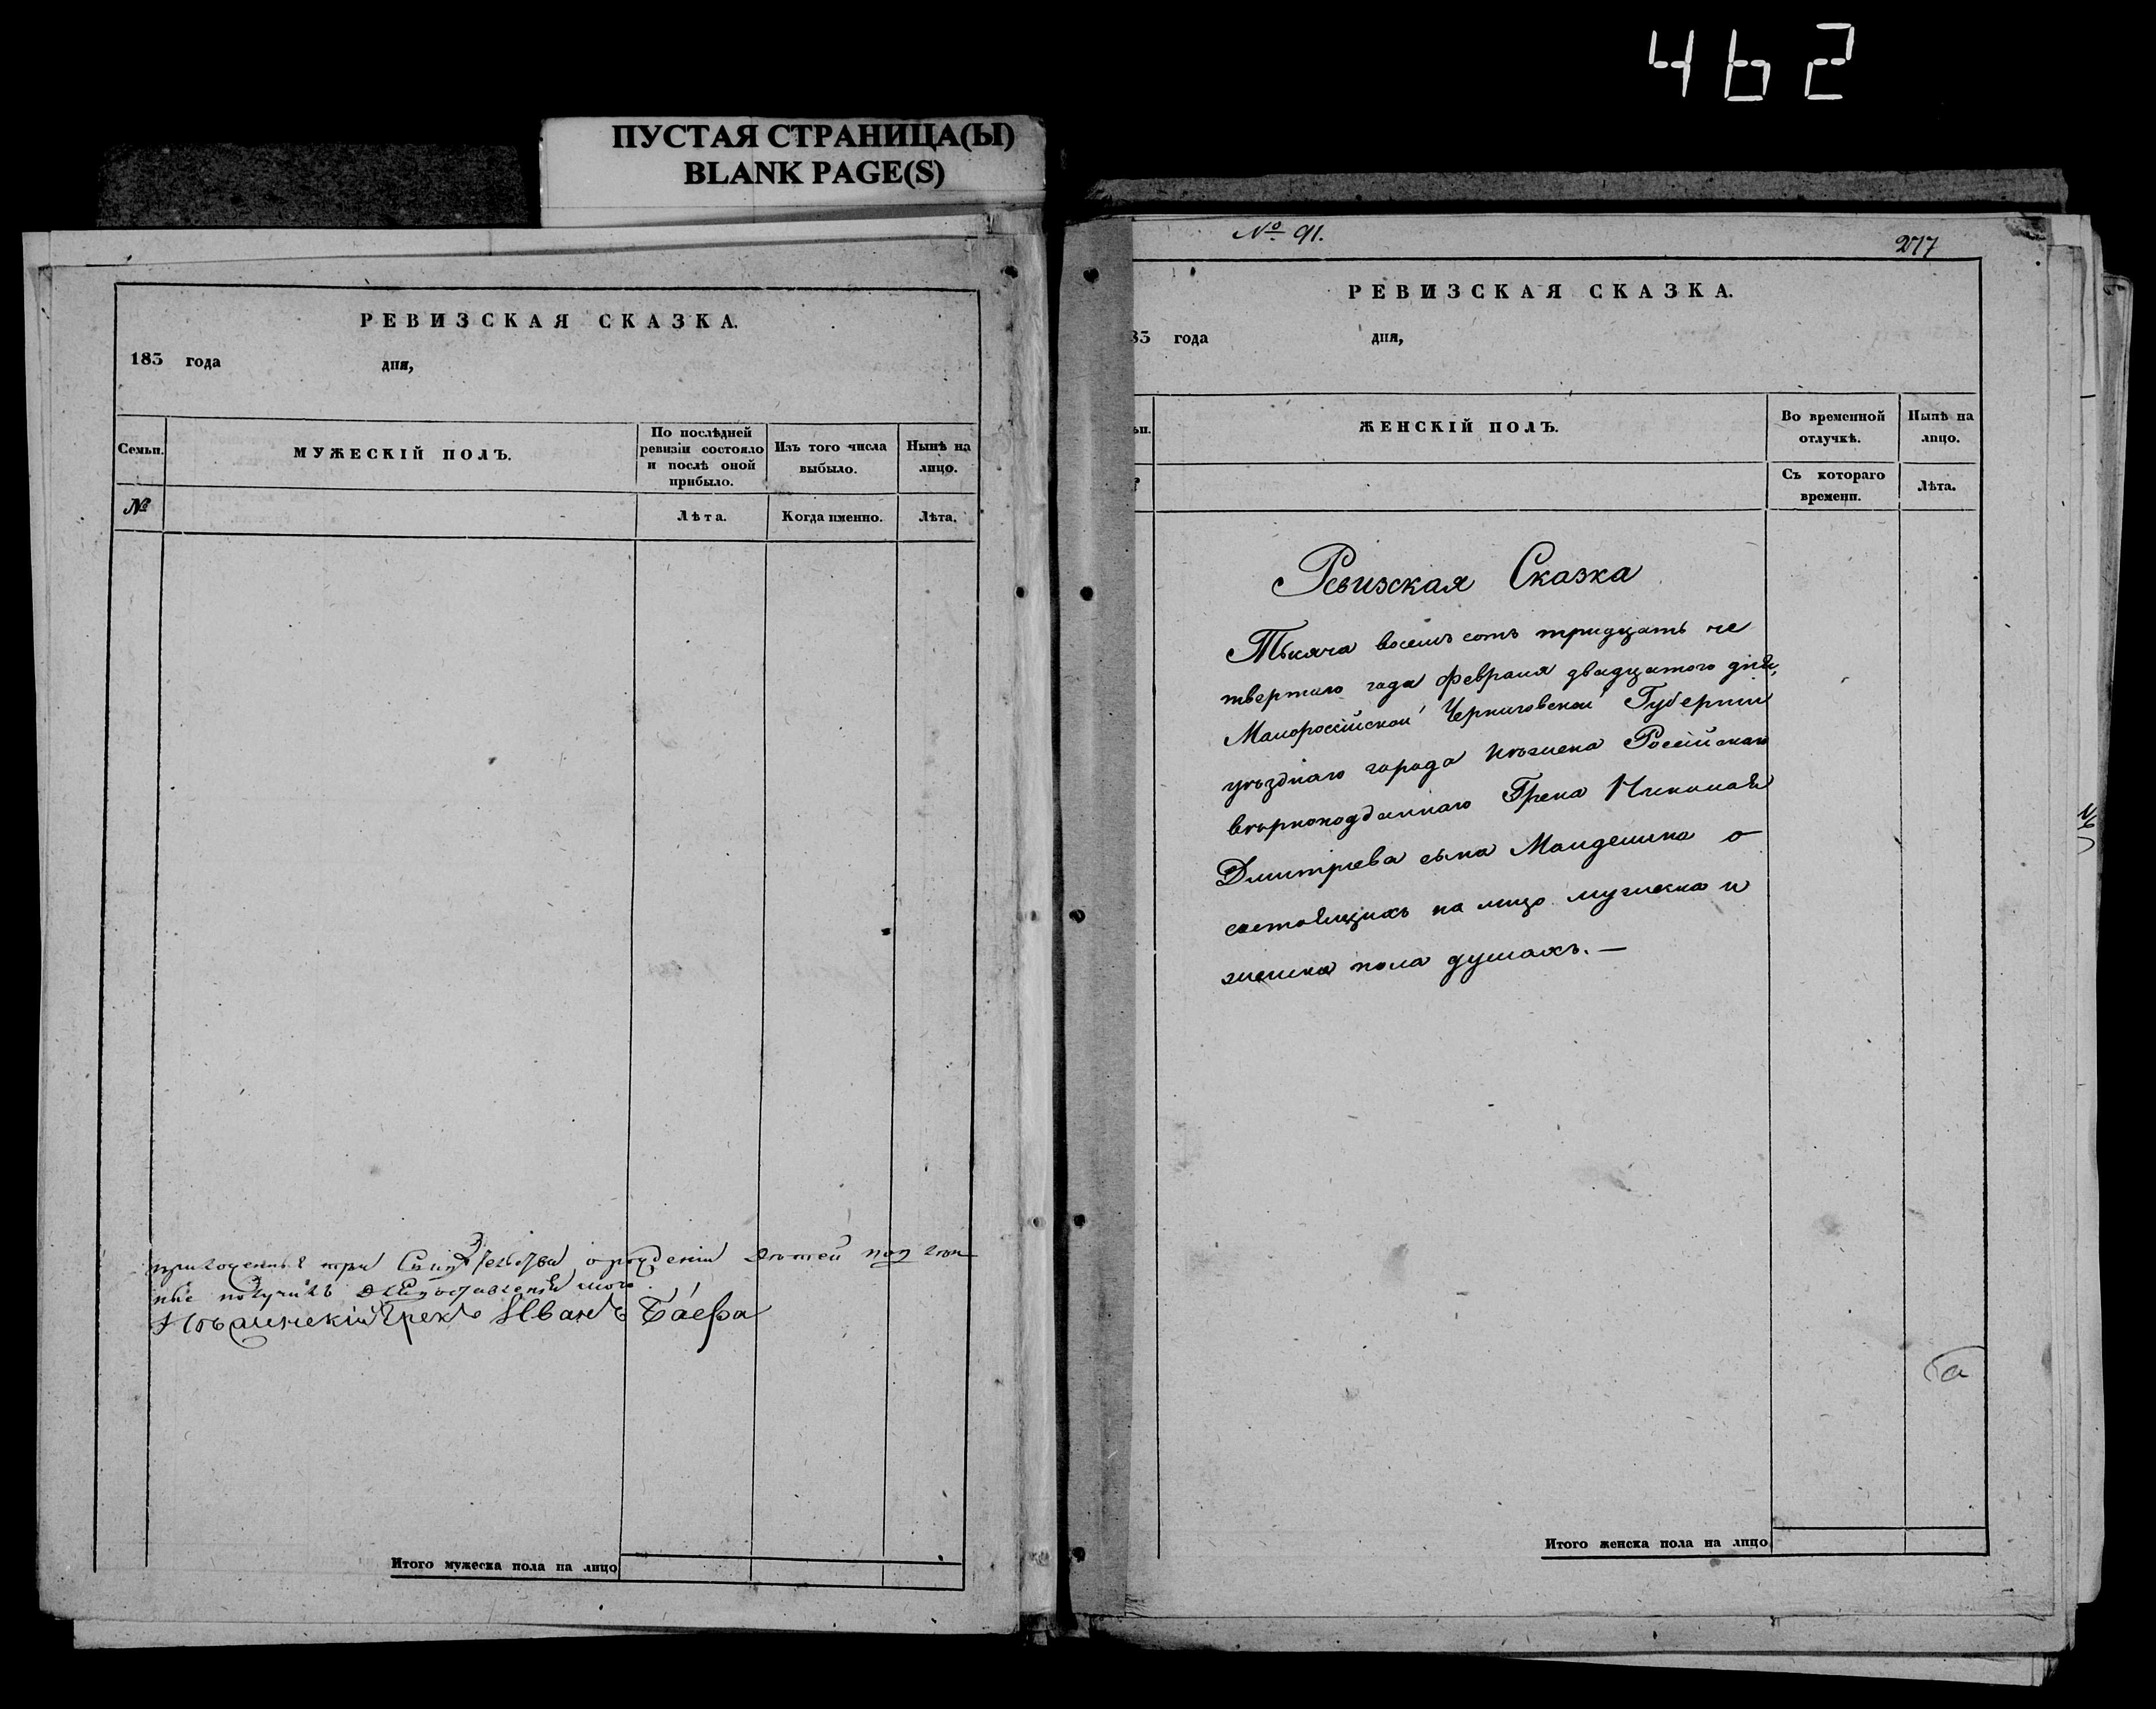 462
ПУСТАЯ СТРАНИЦА(Ы)
BLANK PAGE(S)
РЕВИЗСКАЯ СКАЗКА.
183 года дня,
Семьи.
МУЖЕСКІЙ ПОЛЪ.
По послѣдней
ревизіи состояло
и послѣ оной
прибыло.
Изъ того числа
выбыло.
Нынѣ на
лицо.
№
Лѣта.
Когда именно.
Лѣта.
три о рожденіи детей
получилъ
Нѣжинскій Грекъ Иванъ Баефа
Итого мужеска пола на лицо
№ 91.
277
РЕВИЗСКАЯ СКАЗКА.
83 года дня,
ьи.
ЖЕНСКІЙ ПОЛЪ.
Во временной
отлучкѣ.
Нынѣ на
лицо.
Съ котораго
времени.
Лѣта.
Ревизская Сказка
Тысяча восемъ сотъ тридцать че
твертаго года февраля двадцатого дня,
Малороссійской Черниговской Губерніи
уѣзднаго города Нѣжина Россійскаго
вѣрноподданнаго Грека Николая
Дмитріева сына Манденика о
состоящихъ на лицо мужеска и
женска пола душахъ. —
Итого женска пола на лицо